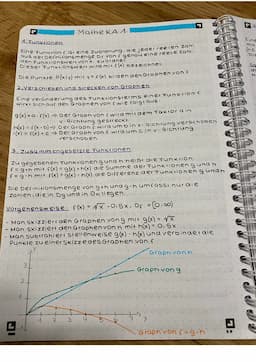 Mathe KA 1
1. Funktionen
Eine Funktion f ist eine Zuordnung, die jeder reellen Zahl
x aus der Definitionsmenge Df von f genau eine reelle Zahl,
den Funktionswert von x, zuordnet.
Dieser Funktionswert wird mit f(x) bezeichnet.
Die Punkte P(x|y) mit y = f(x) bilden den Graphen von f.
2. Verschieben und Strecken von Graphen
Eine Veränderung des Funktionsterms einer Funktion f
wirkt sich auf den Graphen von f wie folgt aus:
g(x) = a · f(x) → Der Graph von f wird mit dem Faktor a in
y-Richtung gestreckt
verschoben
3. Zusammengesetzte Funktionen
Zu gegebenen Funktionen g und h heißt die Funktion
f = g + h mit f(x) = g(x) + h(x) die Summe der Funktionen g und h
f = g - h mit f(x) = g(x) - h(x) die Differenz der Funktionen g und h
Die Definitionsmenge von g+h und g-h umfasst nur die
Zahlen, die in Dg und in Dh liegen.
Vorgehensweise: f(x) = √x - 0,5x, Df = [0; ∞)
- Man skizziert den Graphen von g mit g(x) = √x
- Man skizziert den Graphen von h mit h(x) = 0,5x
- Man subtrahiert stellenweise g(x) - h(x) und verbindet die
Punkte zu einer Skizze des Graphen von f.
Graph von h
Graph von g
Graph von f = g - h